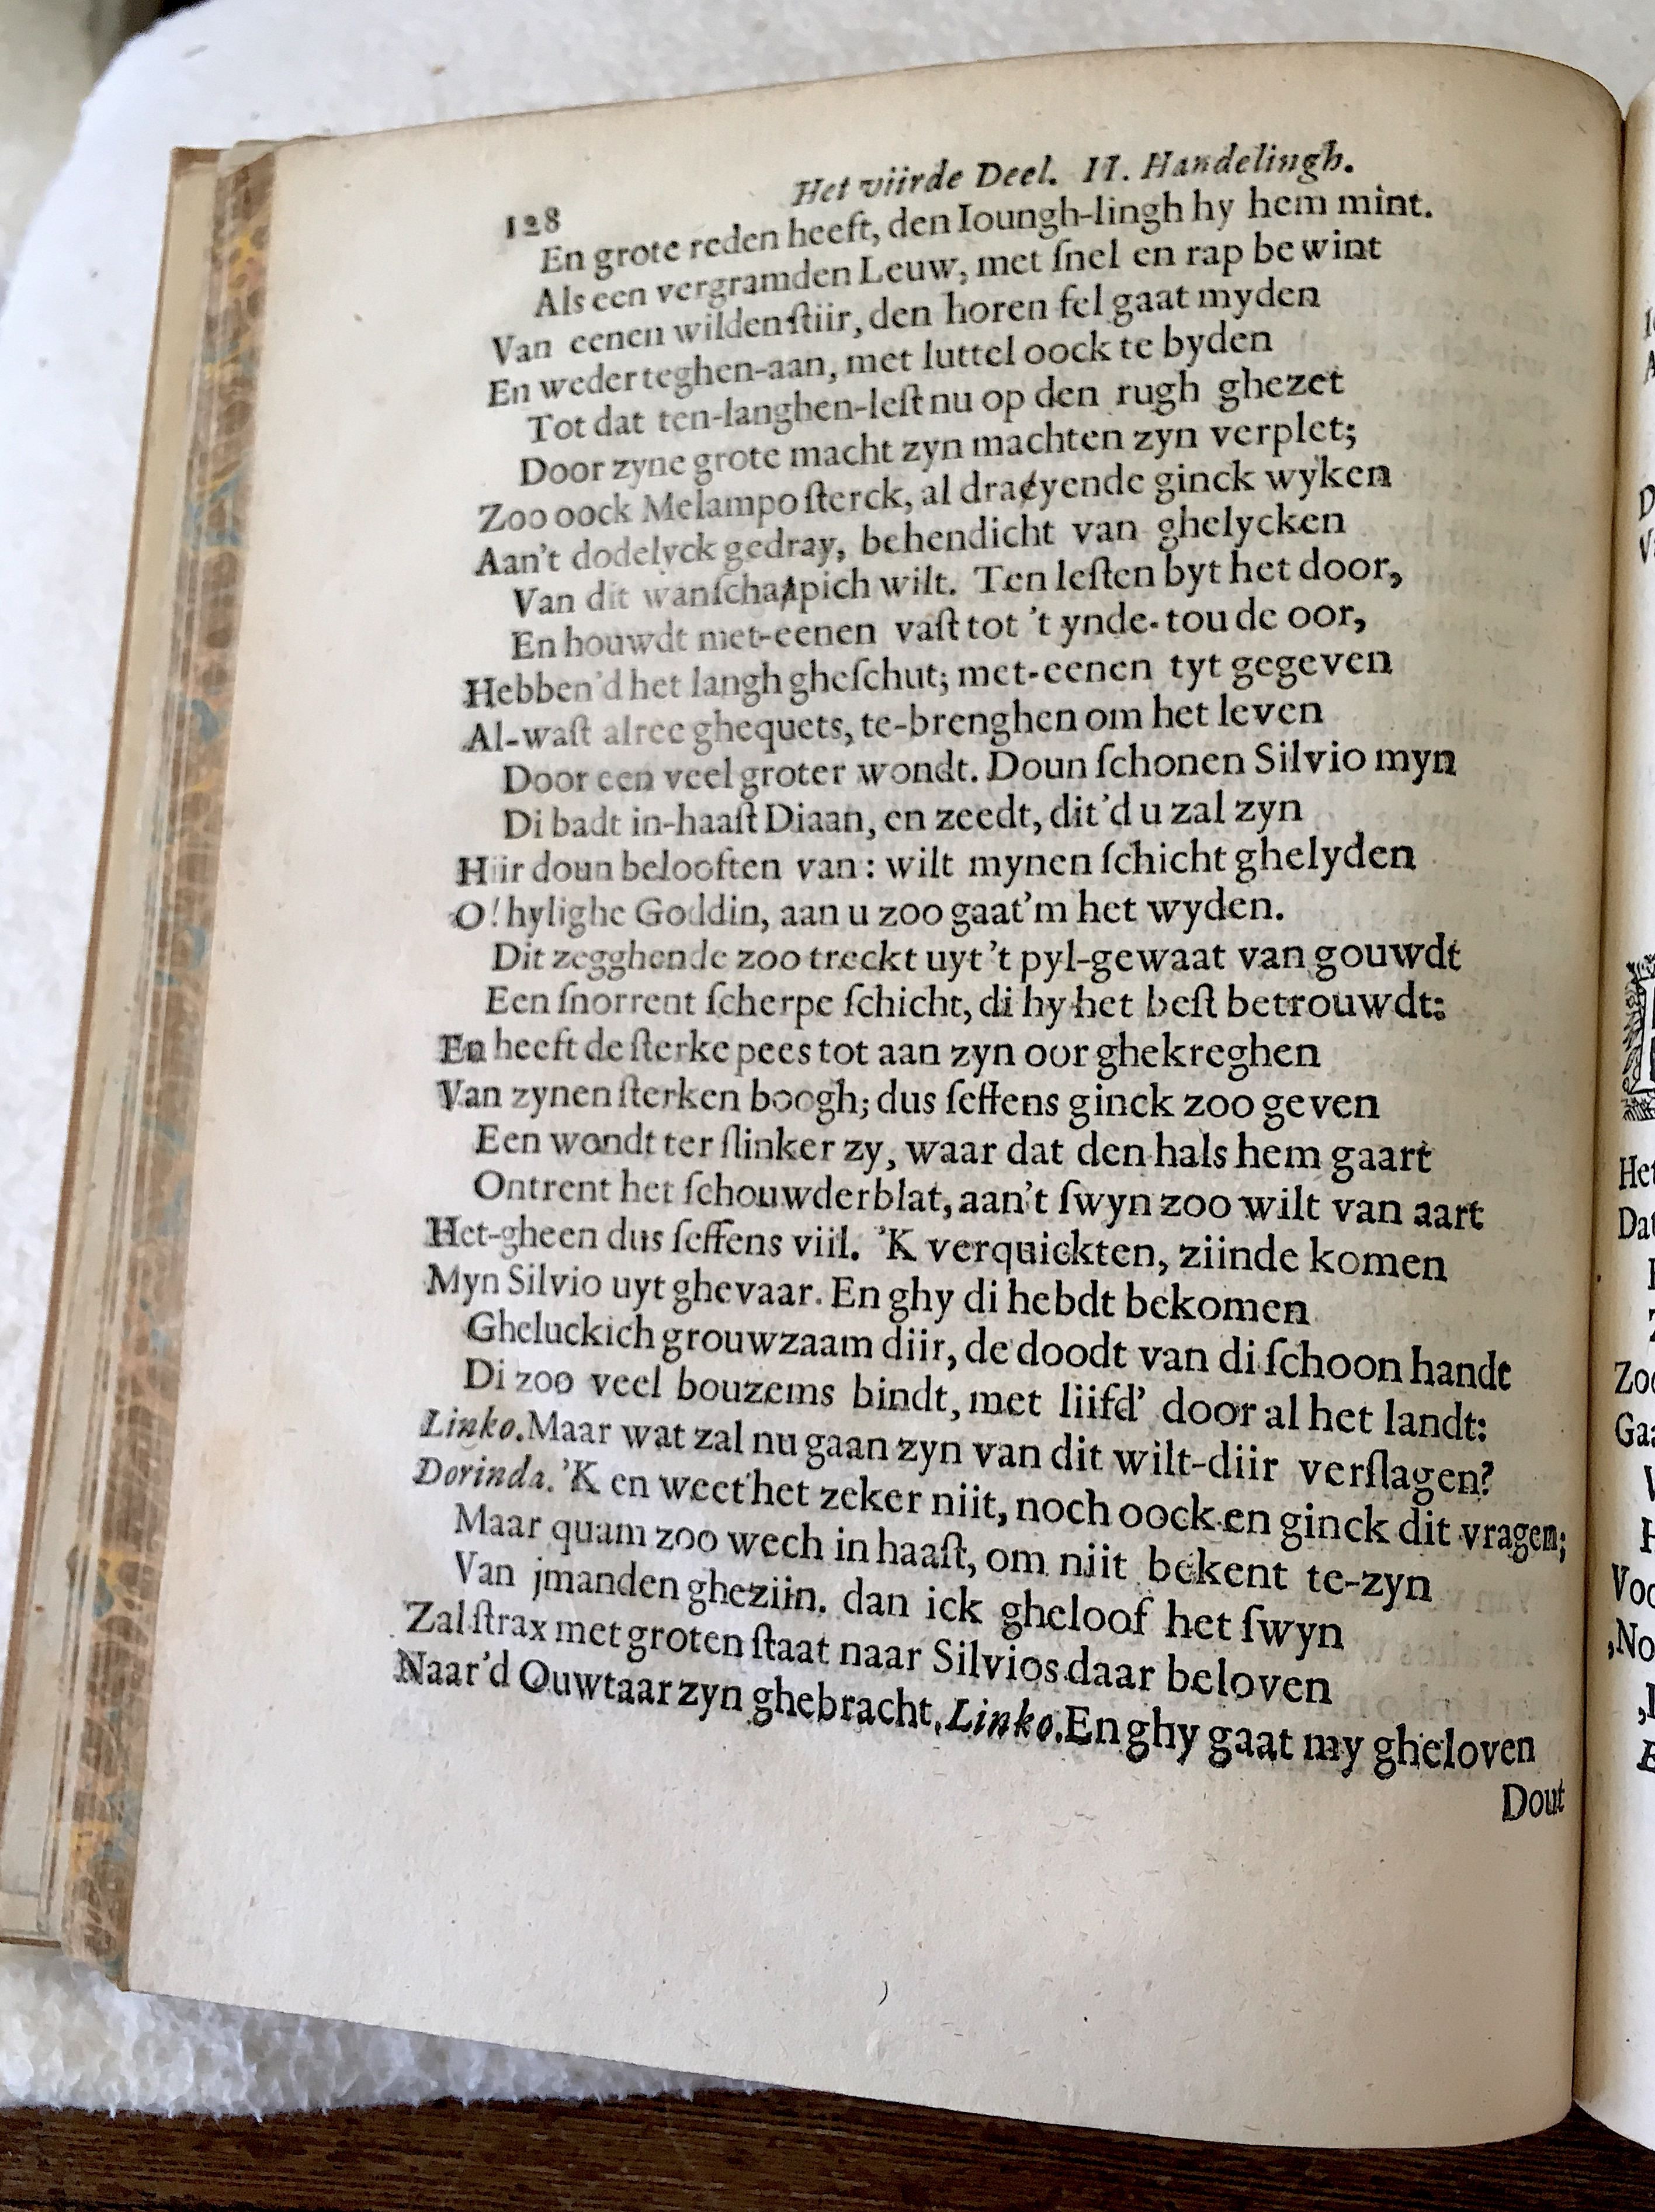 128
Het viirde Deel. II. Handelingh.
En grote reden heeft, den Ioungh-lingh hy hem mint.
Als een vergramden Leuw, met ſnel en rap bewint
Van eenen wilden ſtiir, den horen fel gaat myden
En weder teghen-aan, met luttel oock te byden
Tot dat ten-langhen-leſt nu op den rugh ghezet
Door zyne grote macht zyn machten zyn verplet;
Zoo oock Melampo ſterck, al draeyende ginck wyken
Aan't dodelyck gedray, behendicht van ghelycken
Van dit wanſchapich wilt. Ten leſten byt het door,
En houwdt met-eenen vaſt tot 't ynde-tou de oor,
Hebben'd het langh gheſchut; met-eenen tyt gegeven
Al-waſt alree ghequets, te-brenghen om het leven
Door een veel groter wondt. Doun ſchonen Silvio myn
Di badt in-haaſt Diaan, en zeedt, dit'd u zal zyn
Hiir doun belooften van: wilt mynen ſchicht ghelyden
O! hylighe Goddin, aan u zoo gaat'm het wyden.
Dit zegghende zoo treckt uyt 't pyl-gewaat van gouwdt
Een ſnorrent ſcherpe ſchicht, di hy het beſt betrouwdt:
En heeft de ſterke pees tot aan zyn oor ghekreghen
Van zynen ſterken boogh; dus ſeffens ginck zoo geven
Een wondt ter ſlinker zy, waar dat den hals hem gaart
Ontrent het ſchouwderblat, aan't ſwyn zoo wilt van aart
Het-gheen dus ſeffens viil. 'K verquickten, ziinde komen
Myn Silvio uyt ghevaar. En ghy di hebdt bekomen
Gheluckich grouwzaam diir, de doodt van di ſchoon handt
Di zoo veel bouzems bindt, met liifd' door al het landt:
Linko. Maar wat zal nu gaan zyn van dit wilt-diir verſlagen?
Dorinda. 'K en weet het zeker niit, noch oock en ginck dit vragen;
Maar quam zoo wech in haaſt, om niit bekent te-zyn
Van jmanden gheziin. dan ick gheloof het ſwyn
Zal ſtrax met groten ſtaat naar Silvios daar beloven
Naar'd Ouwtaar zyn ghebracht. Linko. En ghy gaat my gheloven
Dout
Het
Dat
Zoo
Gaa
Voo